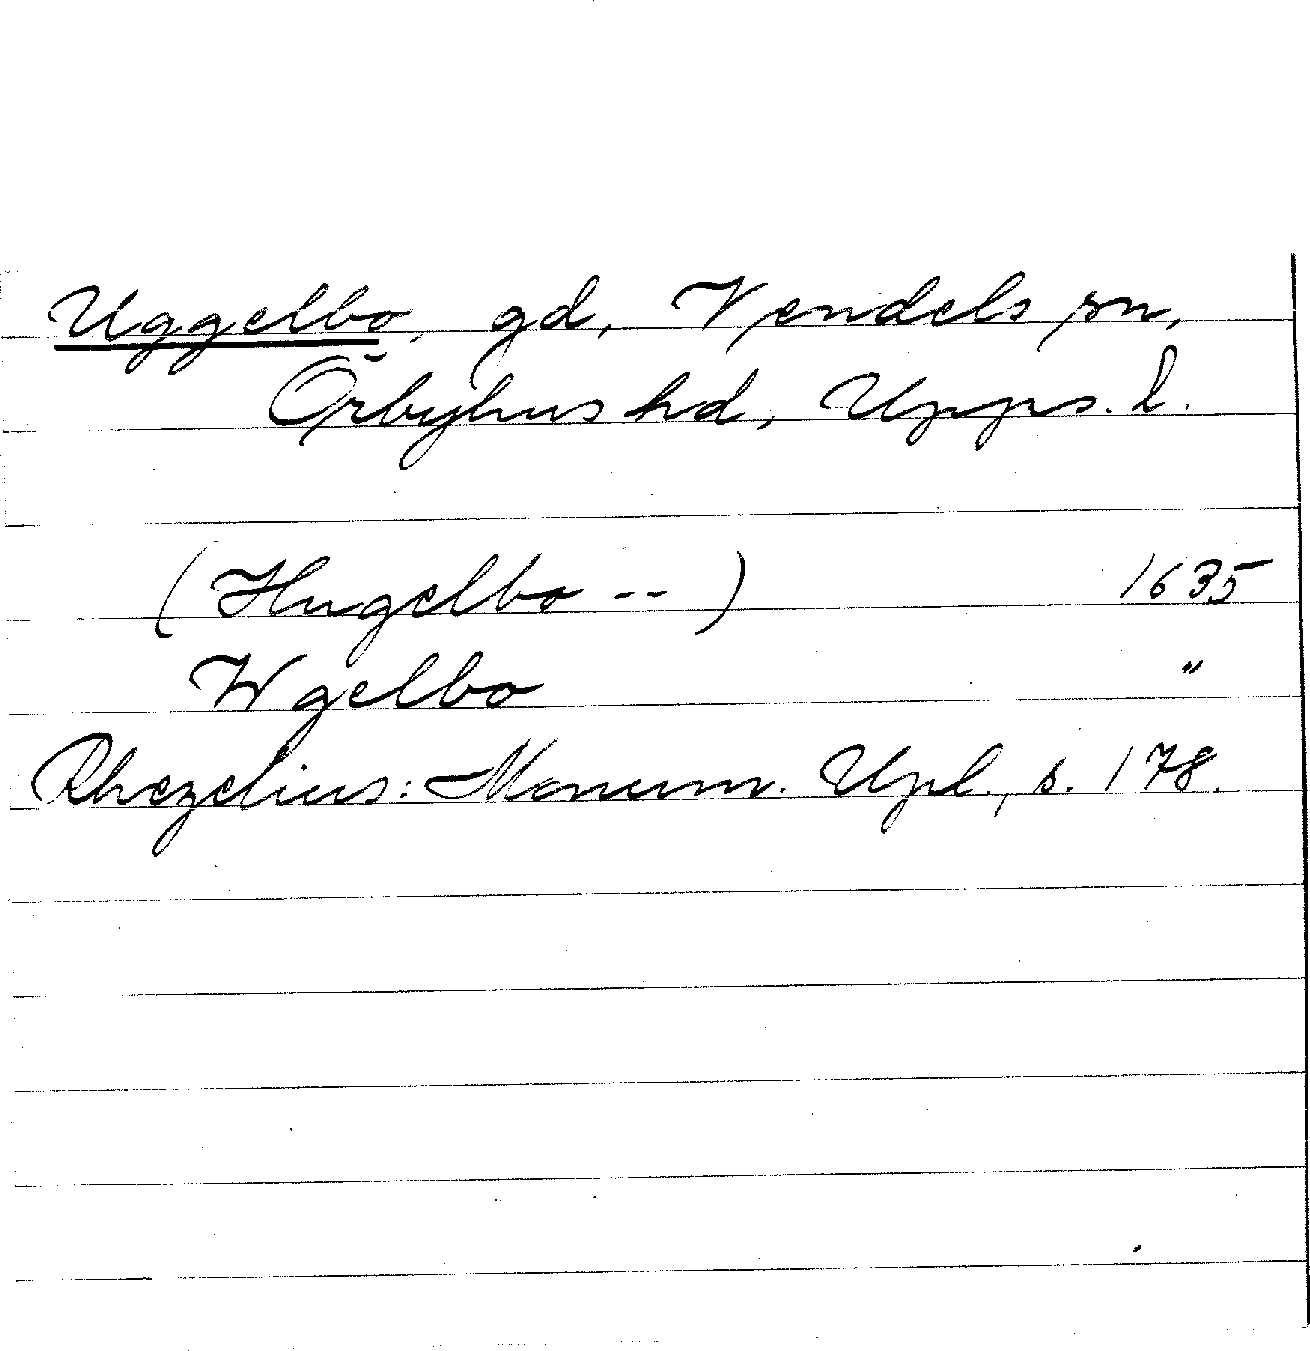 Uggelbo, gd, Vendels sn,
Örbyhus hd, Upps. l.
(Hugelbo -- ) 1635
Wgelbo "
Rhezelius: Monum. Upl., s. 178.